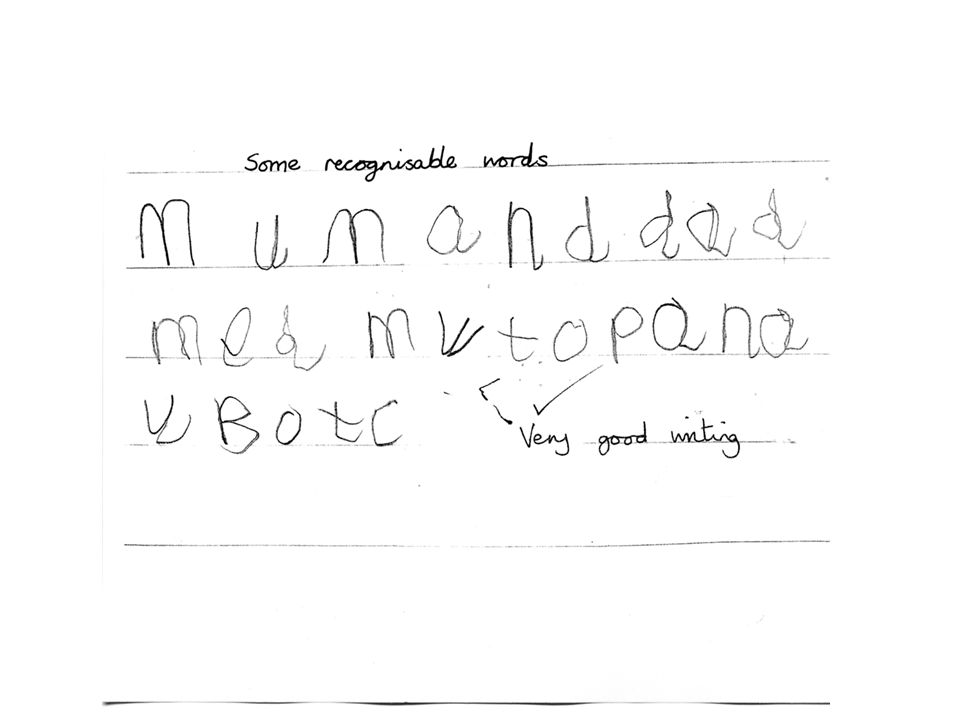 Some recognisable words
Mum and dad
med mu to pana
u Botc
Very good writing